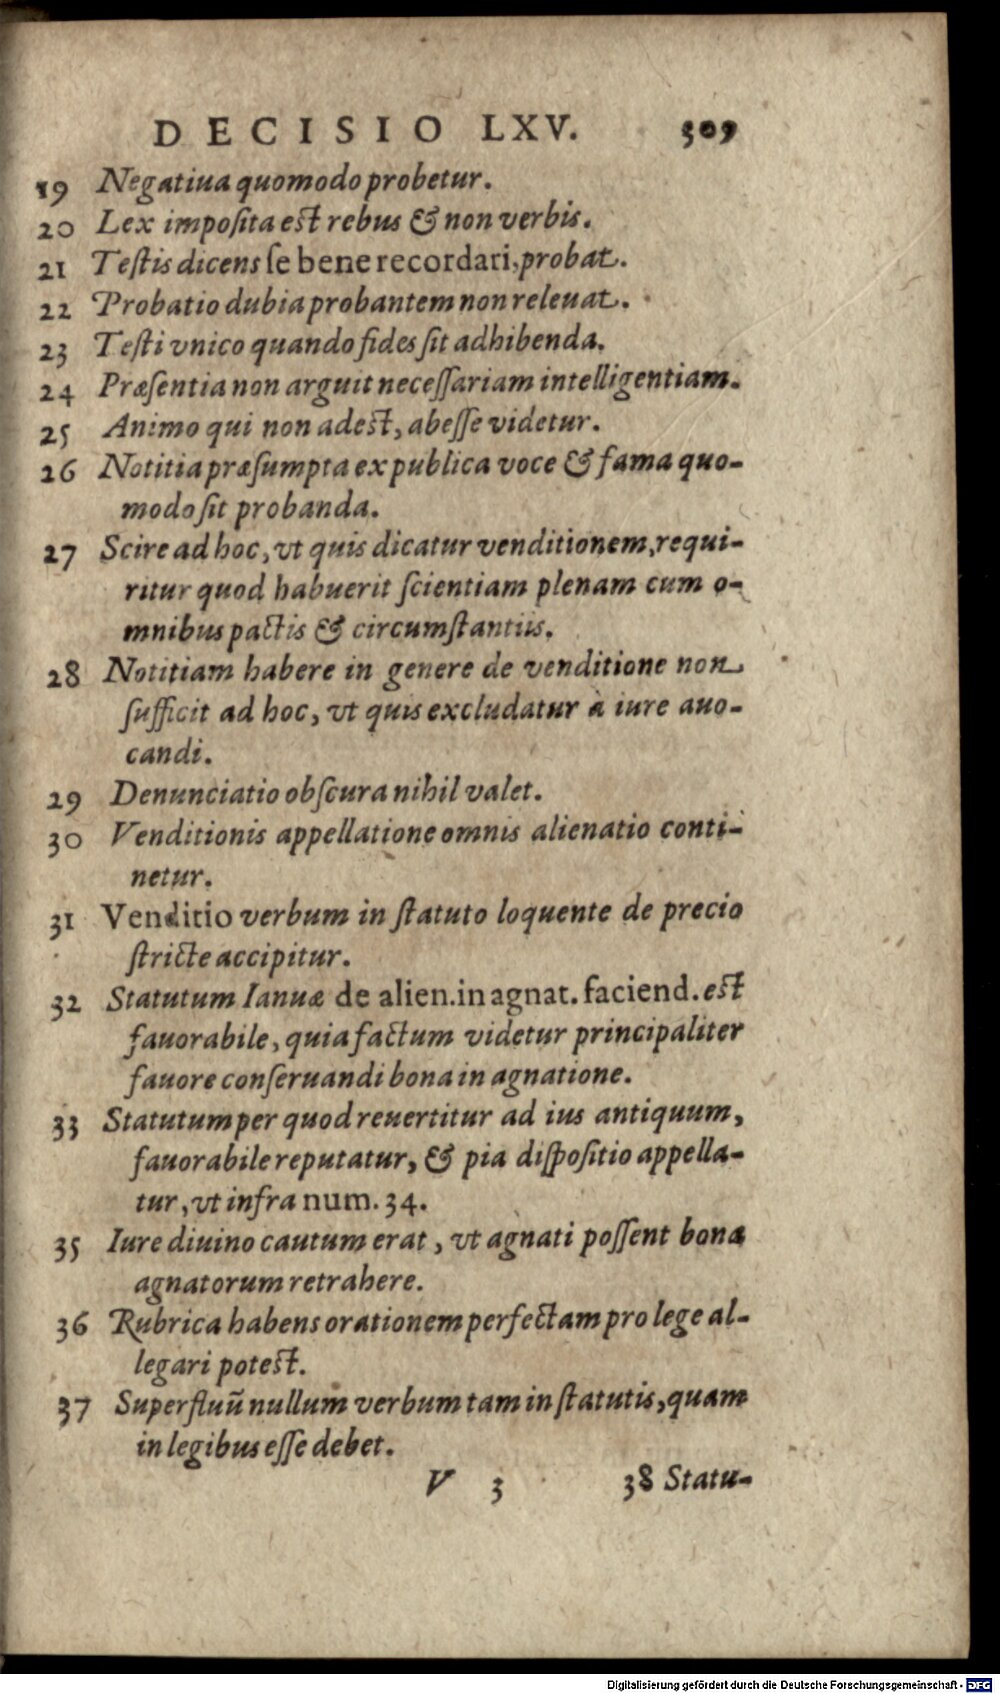 DECISIO LXV. 309
19 Negatiua quomodo probetur.
20 Lex imposita est rebus & non verbis.
21 Testis dicens se bene recordari, probat.
22 Probatio dubia probantem non releuat.
23 Testi vnico quando fides sit adhibenda.
24 Præsentia non arguit necessariam intelligentiam.
25 Animo qui non adest, abesse videtur.
26 Notitia præsumpta ex publica voce & fama quo-
modo sit probanda.
27 Scire ad hoc, vt quis dicatur venditionem, requi-
ritur quod habuerit scientiam plenam cum o-
mnibus pactis & circumstantiis.
28 Notitiam habere in genere de venditione non
sufficit ad hoc, vt quis excludatur à iure auo-
candi.
29 Denunciatio obscura nihil valet.
30 Venditionis appellatione omnis alienatio conti-
netur.
31 Venditio verbum in statuto loquente de precio
stricte accipitur.
32 Statutum Ianuæ de alien. in agnat. faciend. est
fauorabile, quia factum videtur principaliter
fauore conseruandi bona in agnatione.
33 Statutum per quod reuertitur ad ius antiquum,
fauorabile reputatur, & pia dispositio appella-
tur, vt infra num. 34.
35 Iure diuino cautum erat, vt agnati possent bona
agnatorum retrahere.
36 Rubrica habens orationem perfectam pro lege al-
legari potest.
37 Superfluū nullum verbum tam in statutis, quam
in legibus esse debet.
V 3 38 Statu-
Digitalisierung gefördert durch die Deutsche Forschungsgemeinschaft - DFG